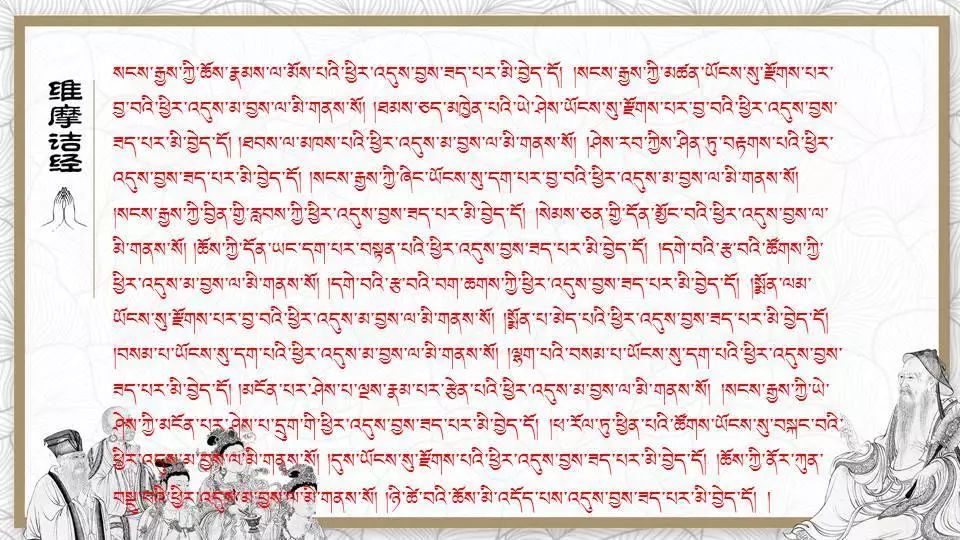 维摩诘经
སངས་རྒྱས་ཀྱི་ཆོས་རྣམས་ལ་མོས་པའི་ཕྱིར་འདུས་བྱས་ཟད་པར་མི་བྱེད་དོ། །སངས་རྒྱས་ཀྱི་མཚན་ཡོངས་སུ་རྫོགས་པར་
བྱ་བའི་ཕྱིར་འདུས་མ་བྱས་ལ་མི་གནས་སོ། །ཐམས་ཅད་མཁྱེན་པའི་ཡེ་ཤེས་ཡོངས་སུ་རྫོགས་པར་བྱ་བའི་ཕྱིར་འདུས་བྱས་
ཟད་པར་མི་བྱེད་དོ། །ཐབས་ལ་མཁས་པའི་ཕྱིར་འདུས་མ་བྱས་ལ་མི་གནས་སོ། །ཤེས་རབ་ཀྱིས་ཤིན་ཏུ་བརྟགས་པའི་ཕྱིར་
འདུས་བྱས་ཟད་པར་མི་བྱེད་དོ། །སངས་རྒྱས་ཀྱི་ཞིང་ཡོངས་སུ་དག་པར་བྱ་བའི་ཕྱིར་འདུས་མ་བྱས་ལ་མི་གནས་སོ།
།སངས་རྒྱས་ཀྱི་བྱིན་གྱི་རླབས་ཀྱི་ཕྱིར་འདུས་བྱས་ཟད་པར་མི་བྱེད་དོ། །སེམས་ཅན་གྱི་དོན་མྱོང་བའི་ཕྱིར་འདུས་བྱས་ལ་
མི་གནས་སོ། །ཆོས་ཀྱི་དོན་ཡང་དག་པར་བསྟན་པའི་ཕྱིར་འདུས་བྱས་ཟད་པར་མི་བྱེད་དོ། །དགེ་བའི་རྩ་བའི་ཚོགས་ཀྱི་
ཕྱིར་འདུས་མ་བྱས་ལ་མི་གནས་སོ། །དགེ་བའི་རྩ་བའི་བག་ཆགས་ཀྱི་ཕྱིར་འདུས་བྱས་ཟད་པར་མི་བྱེད་དོ། །སྨོན་ལམ་
ཡོངས་སུ་རྫོགས་པར་བྱ་བའི་ཕྱིར་འདུས་མ་བྱས་ལ་མི་གནས་སོ། །སྨོན་པ་མེད་པའི་ཕྱིར་འདུས་བྱས་ཟད་པར་མི་བྱེད་དོ།
།བསམ་པ་ཡོངས་སུ་དག་པའི་ཕྱིར་འདུས་མ་བྱས་ལ་མི་གནས་སོ། །ལྷག་པའི་བསམ་པ་ཡོངས་སུ་དག་པའི་ཕྱིར་འདུས་བྱས་
ཟད་པར་མི་བྱེད་དོ། །མངོན་པར་ཤེས་པ་ལྔས་རྣམ་པར་རྩེན་པའི་ཕྱིར་འདུས་མ་བྱས་ལ་མི་གནས་སོ། །སངས་རྒྱས་ཀྱི་ཡེ་
ཤེས་ཀྱི་མངོན་པར་ཤེས་པ་དྲུག་གི་ཕྱིར་འདུས་བྱས་ཟད་པར་མི་བྱེད་དོ། །ཕ་རོལ་ཏུ་ཕྱིན་པའི་ཚོགས་ཡོངས་སུ་བསྐང་བའི་
ཕྱིར་འདུས་མ་བྱས་ལ་མི་གནས་སོ། །དུས་ཡོངས་སུ་རྫོགས་པའི་ཕྱིར་འདུས་བྱས་ཟད་པར་མི་བྱེད་དོ། །ཆོས་ཀྱི་ནོར་ཀུན་
བསྡུ་བའི་ཕྱིར་འདུས་མ་བྱས་ལ་མི་གནས་སོ། །ཉི་ཚེ་བའི་ཆོས་མི་འདོད་པས་འདུས་བྱས་ཟད་པར་མི་བྱེད་དོ། །